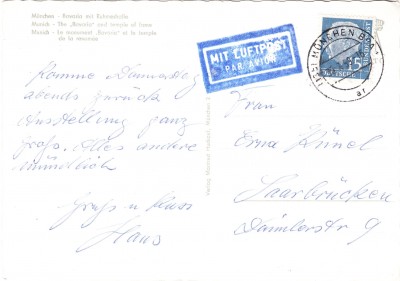 München - Bavaria mit Ruhmeshalle
Munich - The „Bavaria" and temple of fame
Munich - Le monument „Bavaria" et le temple
de la renommée
MIT LUFTPOST
PAR AVION
MÜNCHEN
DEUTSCHE
BUNDESPOST
Komme Donnerstag
abends zurück
Ausstellung ganz
groß. Alles andere
mündlich
Gruß u Kuss
Hans
Frau
Erna Künel
Saarbrücken
Daimlerstr 9